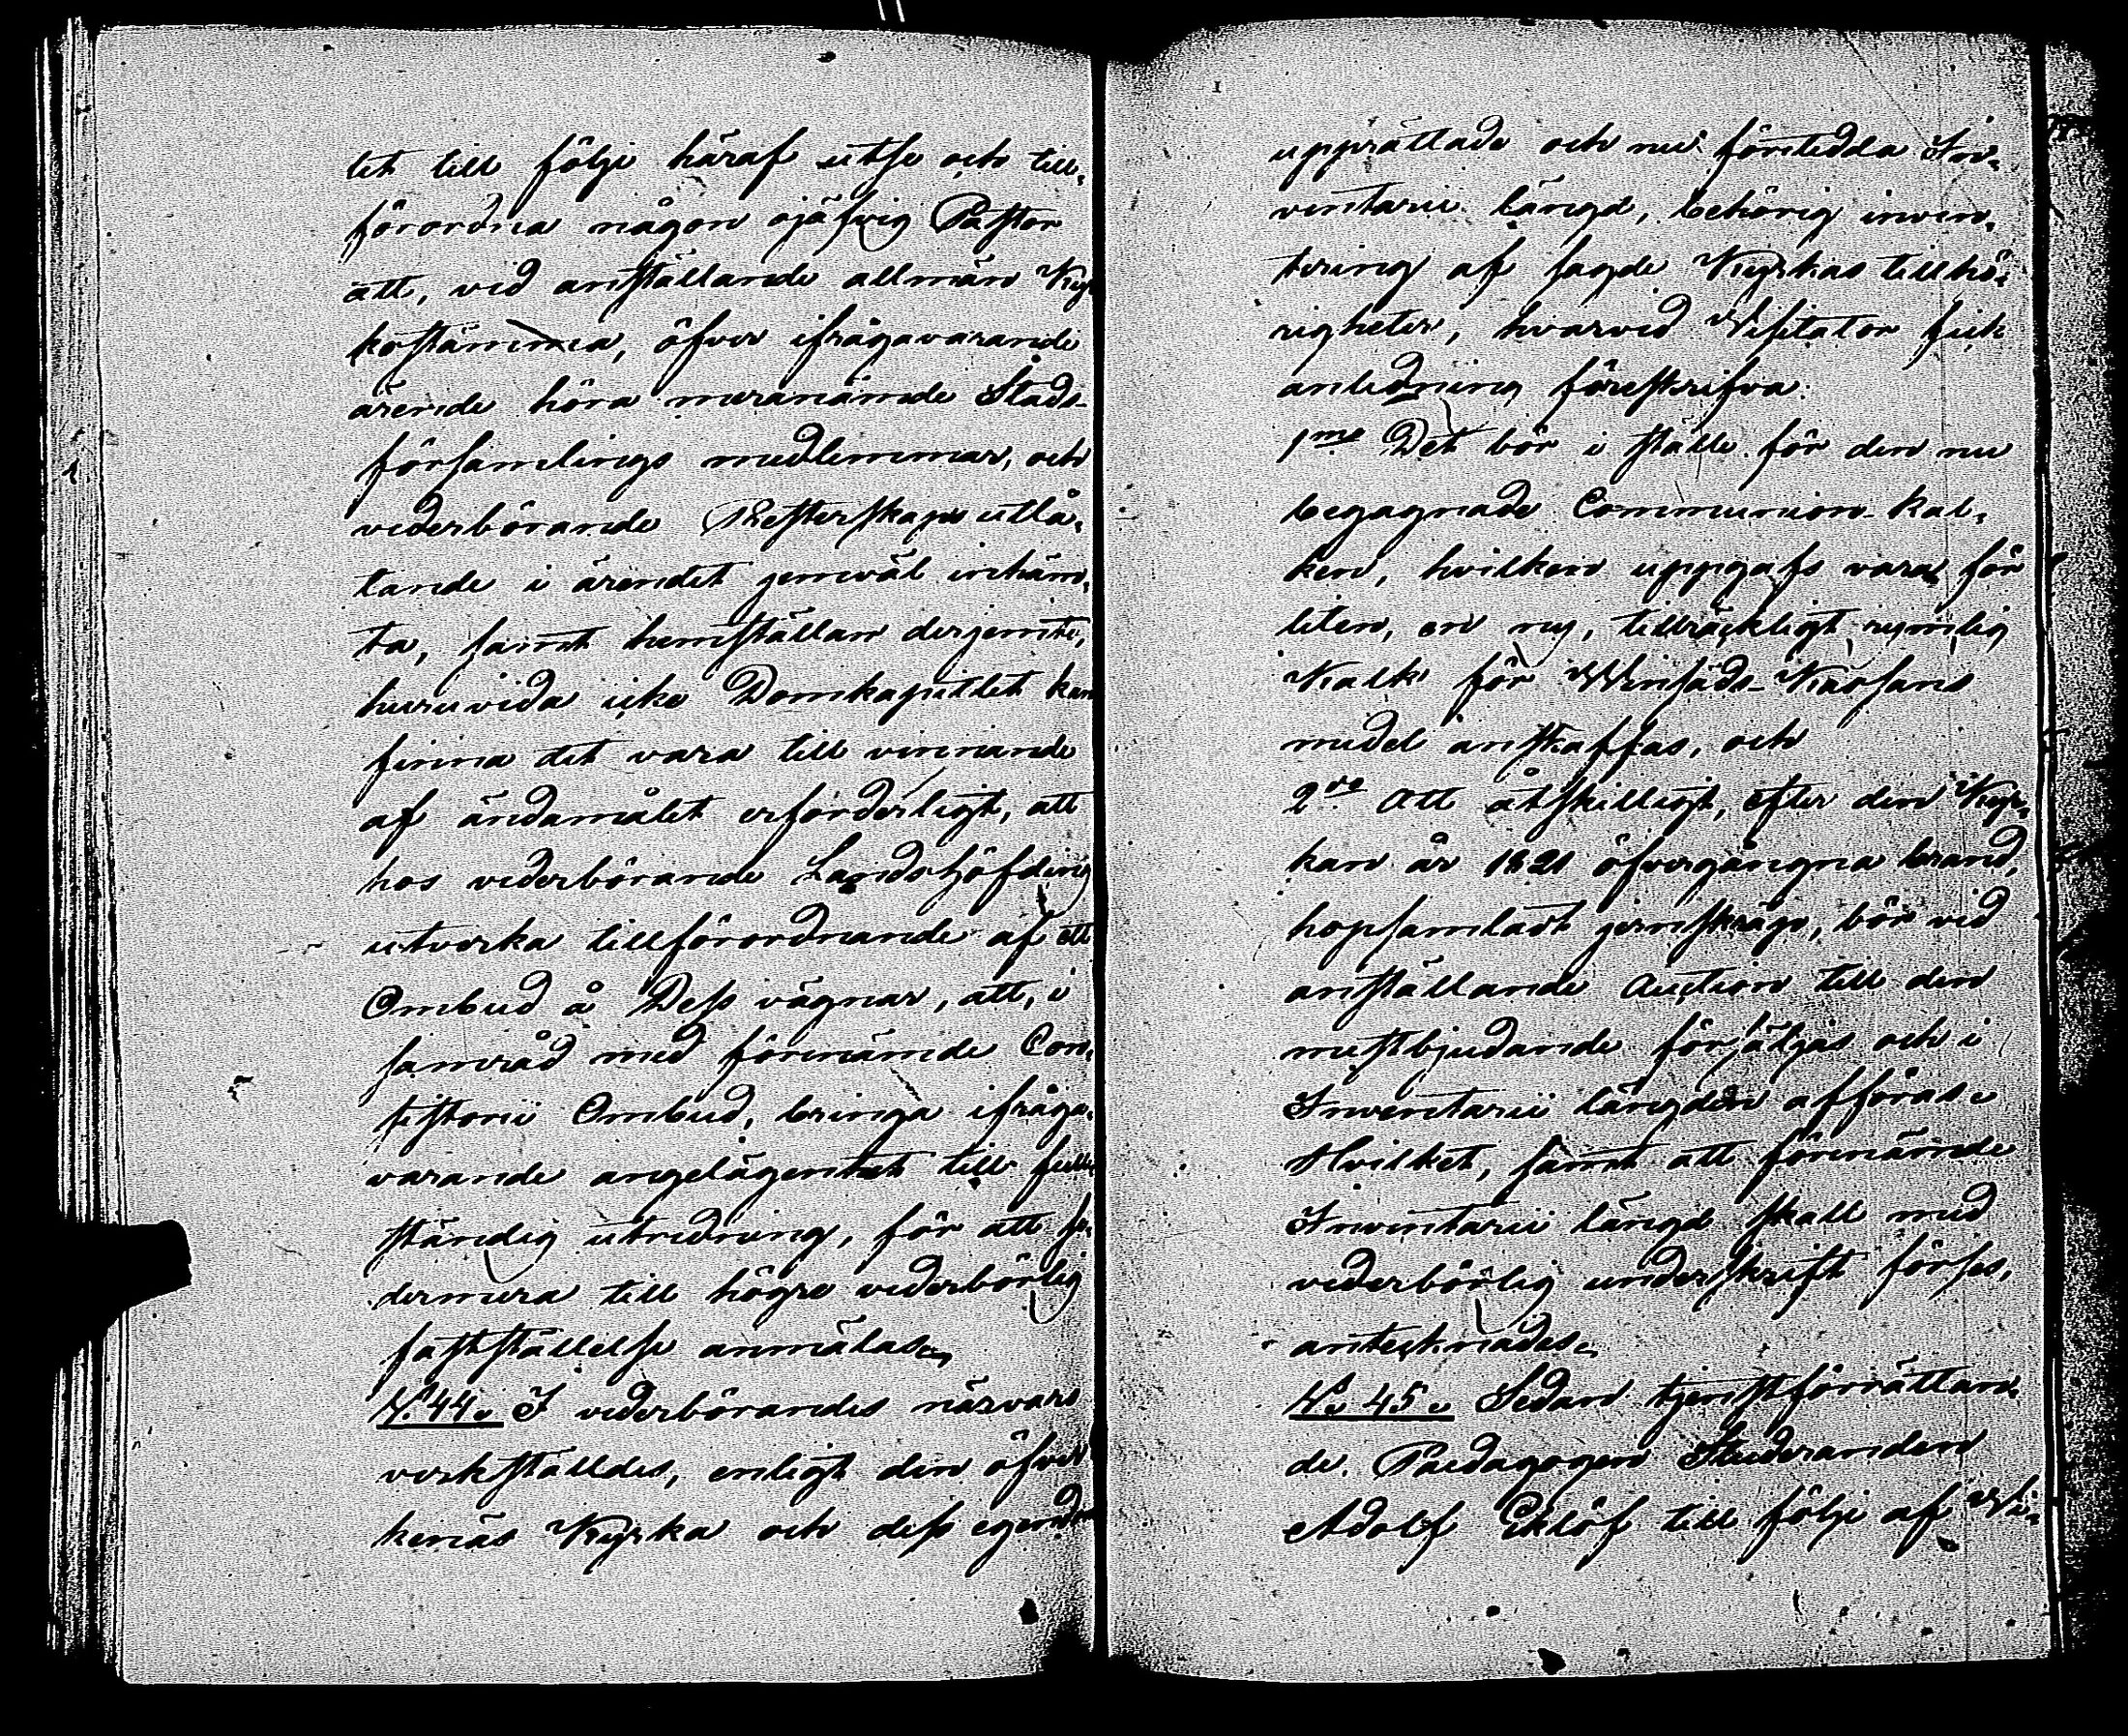 tet till följe häraf utse och till¬
förordna någon ojäfvig Pastor
att, vid anställande allmän Kyr
kostämma, öfver ifrågavarande
ärende höra meranämde Stads
församlings medlemmar, och
vederbörande Presterskaps utlå¬
tande i ärendet jemväl inhäm¬
ta, samt hemställan derjemte,
huruvida icke Domkapitlet kan
finna det vara till vinnande
af ändamålet erforderligt, att
hos vederbörande Landshöfding
utverka tillförordnande af ett
Ombud å Dess vägnar, att, i
samråd med förenämde Con¬
sistorii Ombud, bringa ifråga¬
varande angelägenhet till full
ständig utredning, för att se¬
dermera till högre vederbörlig
fastställelse anmälas.
N. 44. I vederbörandes närvaro
verkställdes, enligt den öfver
kenäs Kyrka och dess egendom
upprättade och nu företedda In¬
ventarii längd, behörig inven¬
tering af sagde Kyrkas tillhö¬
righeter, hvarvid Visitator fick
anledning föreskrifva:
1mo Det bör i ställe för den nu
begagnade Communion-kal¬
ken, hvilken uppgafs vara för
liten, en ny, tillräckligt rymlig
Kalk för Winsäds-Kassans
medel anskaffas, och
2do Att åtskilligt, efter den Kyr¬
kan år 1821 öfvergångna brand,
hopsamladt jernskräp, bör vid
anställande Auction till den
mestbjudande försäljas och i
Inventarii längden afföras.
Hvilket, samt att förenämde
Inventarii längd skall med
vederbörlig underskrift förses,
antecknades.
N. 45. Sedan tjenstförrättan¬
de Paedagogen Studeranden
Adolf Eklöf till följe af Vi¬